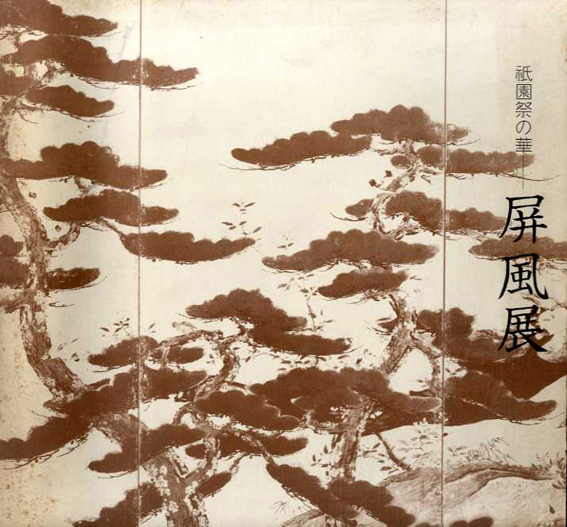 祇園祭の華──
屏風展